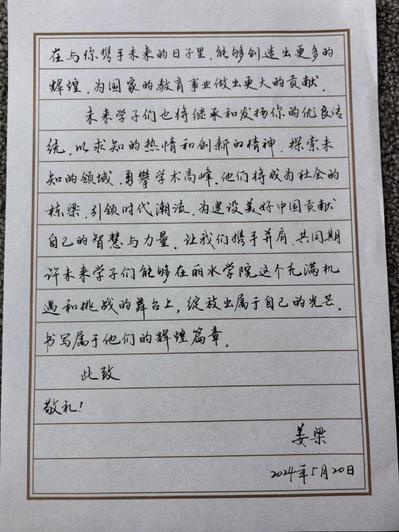 在与你携手未来的日子里,能够创造出更多的
辉煌,为国家的教育事业做出更大的贡献.
未来学子们也将继承和发扬你的优良传
统,以求知的热情和创新的精神,探索未
知的领域,勇攀学术高峰.他们将成为社会的
栋梁,引领时代潮流,为建设美好中国贡献
自己的智慧与力量.让我们携手并肩,共同期
许未来学子们能够在丽水学院这个充满机
遇和挑战的舞台上,绽放出属于自己的光芒,
书写属于他们的辉煌篇章。
此致
敬礼!
姜梁
2024年5月20日